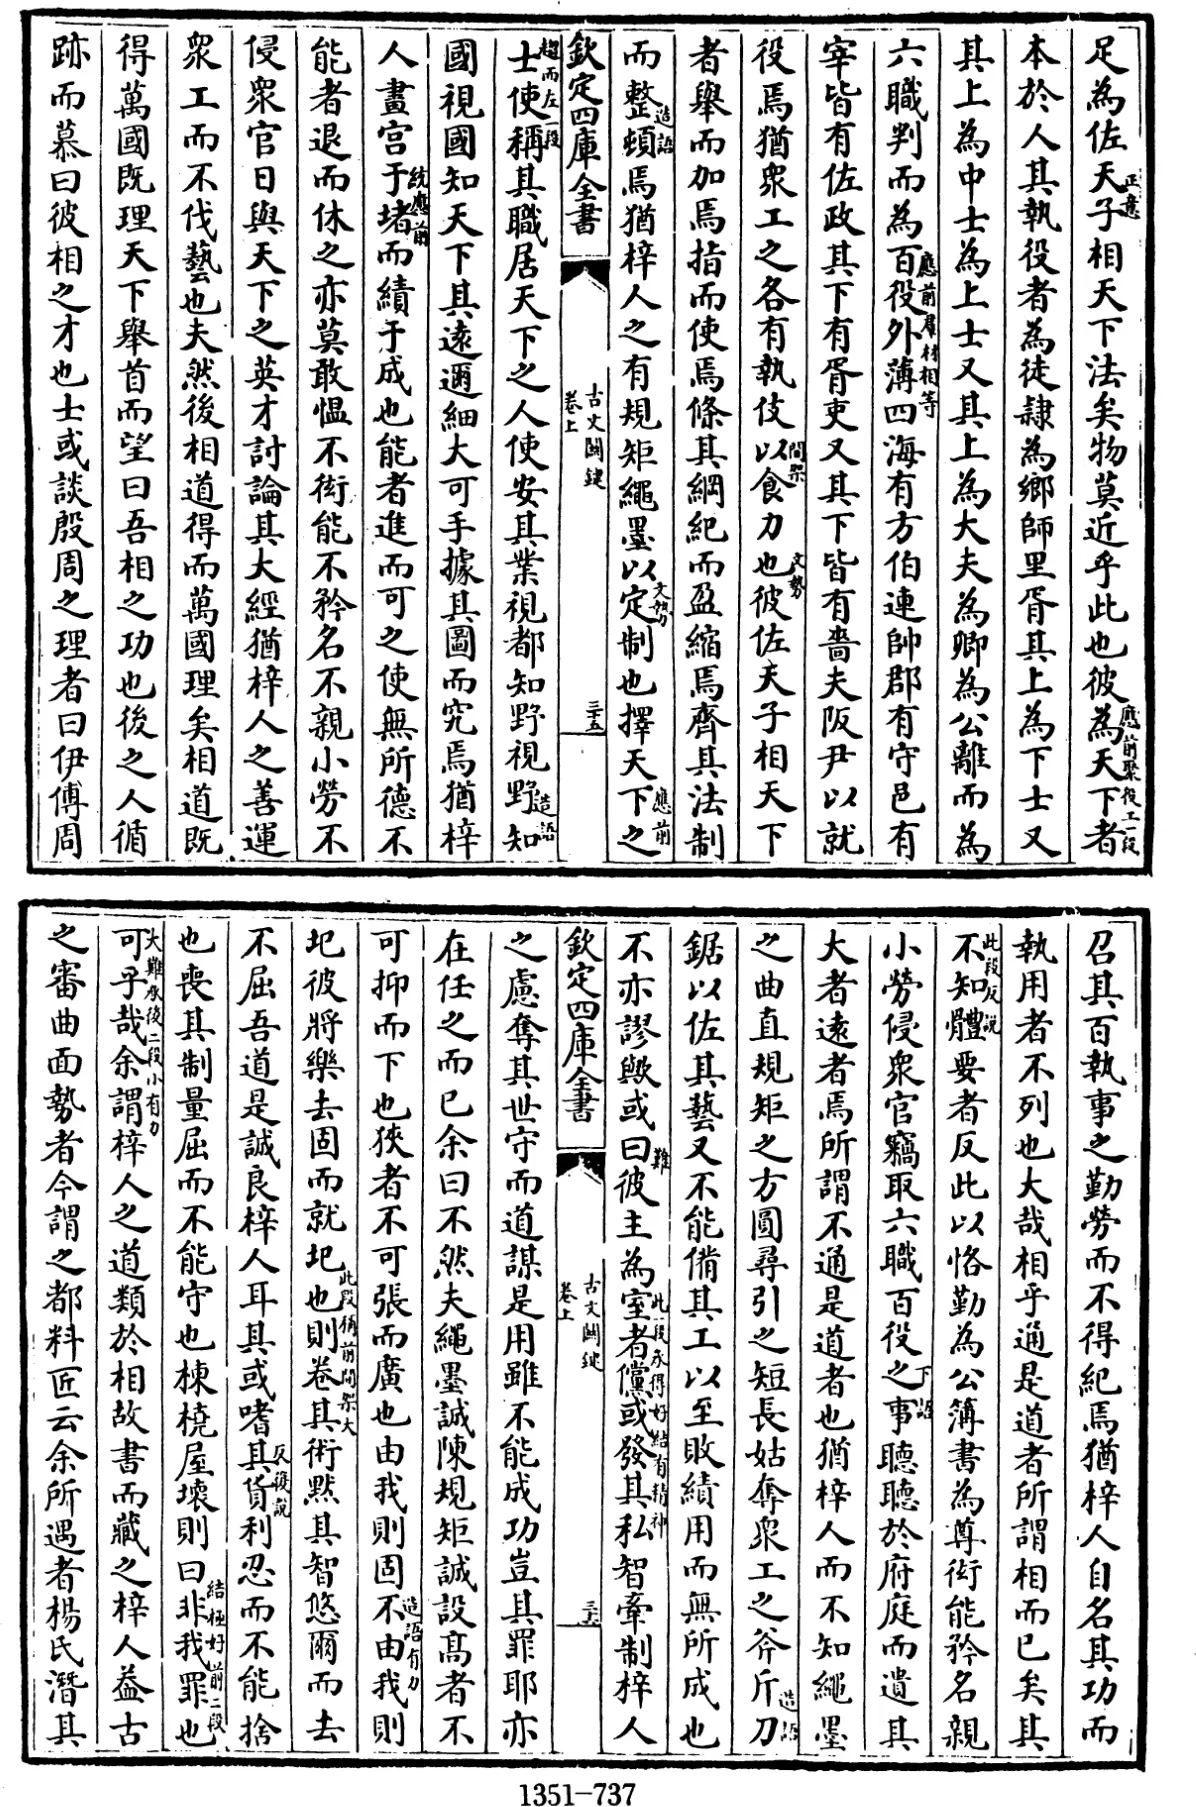 足為佐天子相天下法矣物莫近乎此也彼為天下者
正意
應前眾役工一段
本於人其執役者為徒隸為鄉師里胥其上為下士又
其上為中士為上士又其上為大夫為卿為公離而為
六職判而為百役外薄四海有方伯連帥郡有守邑有
應前羣材相等
宰皆有佐政其下有胥吏又其下皆有嗇夫阪尹以就
役焉猶眾工之各有執伎以食力也彼佐天子相天下
間架
文勢
者舉而加焉指而使焉條其綱紀而盈縮焉齊其法制
而整頓焉猶梓人之有規矩繩墨以定制也擇天下之
造語
文勢
應前
欽定四庫全書
古文關鍵
卷上
三十五
士使稱其職居天下之人使安其業視都知野視野知
趨而左一段
造語
國視國知天下其遠邇細大可手據其圖而究焉猶梓
人畫宮于堵而績于成也能者進而可之使無所德不
統應前
能者退而休之亦莫敢慍不衒能不矜名不親小勞不
侵眾官日與天下之英才討論其大經猶梓人之善運
眾工而不伐藝也夫然後相道得而萬國理矣相道既
得萬國既理天下舉首而望曰吾相之功也後之人循
跡而慕曰彼相之才也士或談殷周之理者曰伊傅周
召其百執事之勤勞而不得紀焉猶梓人自名其功而
執用者不列也大哉相乎通是道者所謂相而已矣其
不知體要者反此以恪勤為公簿書為尊衒能矜名親
此段反說
小勞侵眾官竊取六職百役之事聽聽於府庭而遺其
下語
大者遠者焉所謂不通是道者也猶梓人而不知繩墨
之曲直規矩之方圓尋引之短長姑奪眾工之斧斤刀
造語
鋸以佐其藝又不能備其工以至敗績用而無所成也
不亦謬歟或曰彼主為室者儻或發其私智牽制梓人
難
此一段承得好結有精神
欽定四庫全書
古文關鍵
卷上
三十六
之慮奪其世守而道謀是用雖不能成功豈其罪耶亦
在任之而已余曰不然夫繩墨誠陳規矩誠設高者不
可抑而下也狹者不可張而廣也由我則固不由我則
造語有力
圮彼將樂去固而就圮也則卷其術默其智悠爾而去
此段稱前間架大
不屈吾道是誠良梓人耳其或嗜其貨利忍而不能捨
反後說
也喪其制量屈而不能守也棟橈屋壞則曰非我罪也
結極好前二段
可乎哉余謂梓人之道類於相故書而藏之梓人蓋古
大難承後二段小有力
之審曲面勢者今謂之都料匠云余所遇者楊氏潛其
1351-737